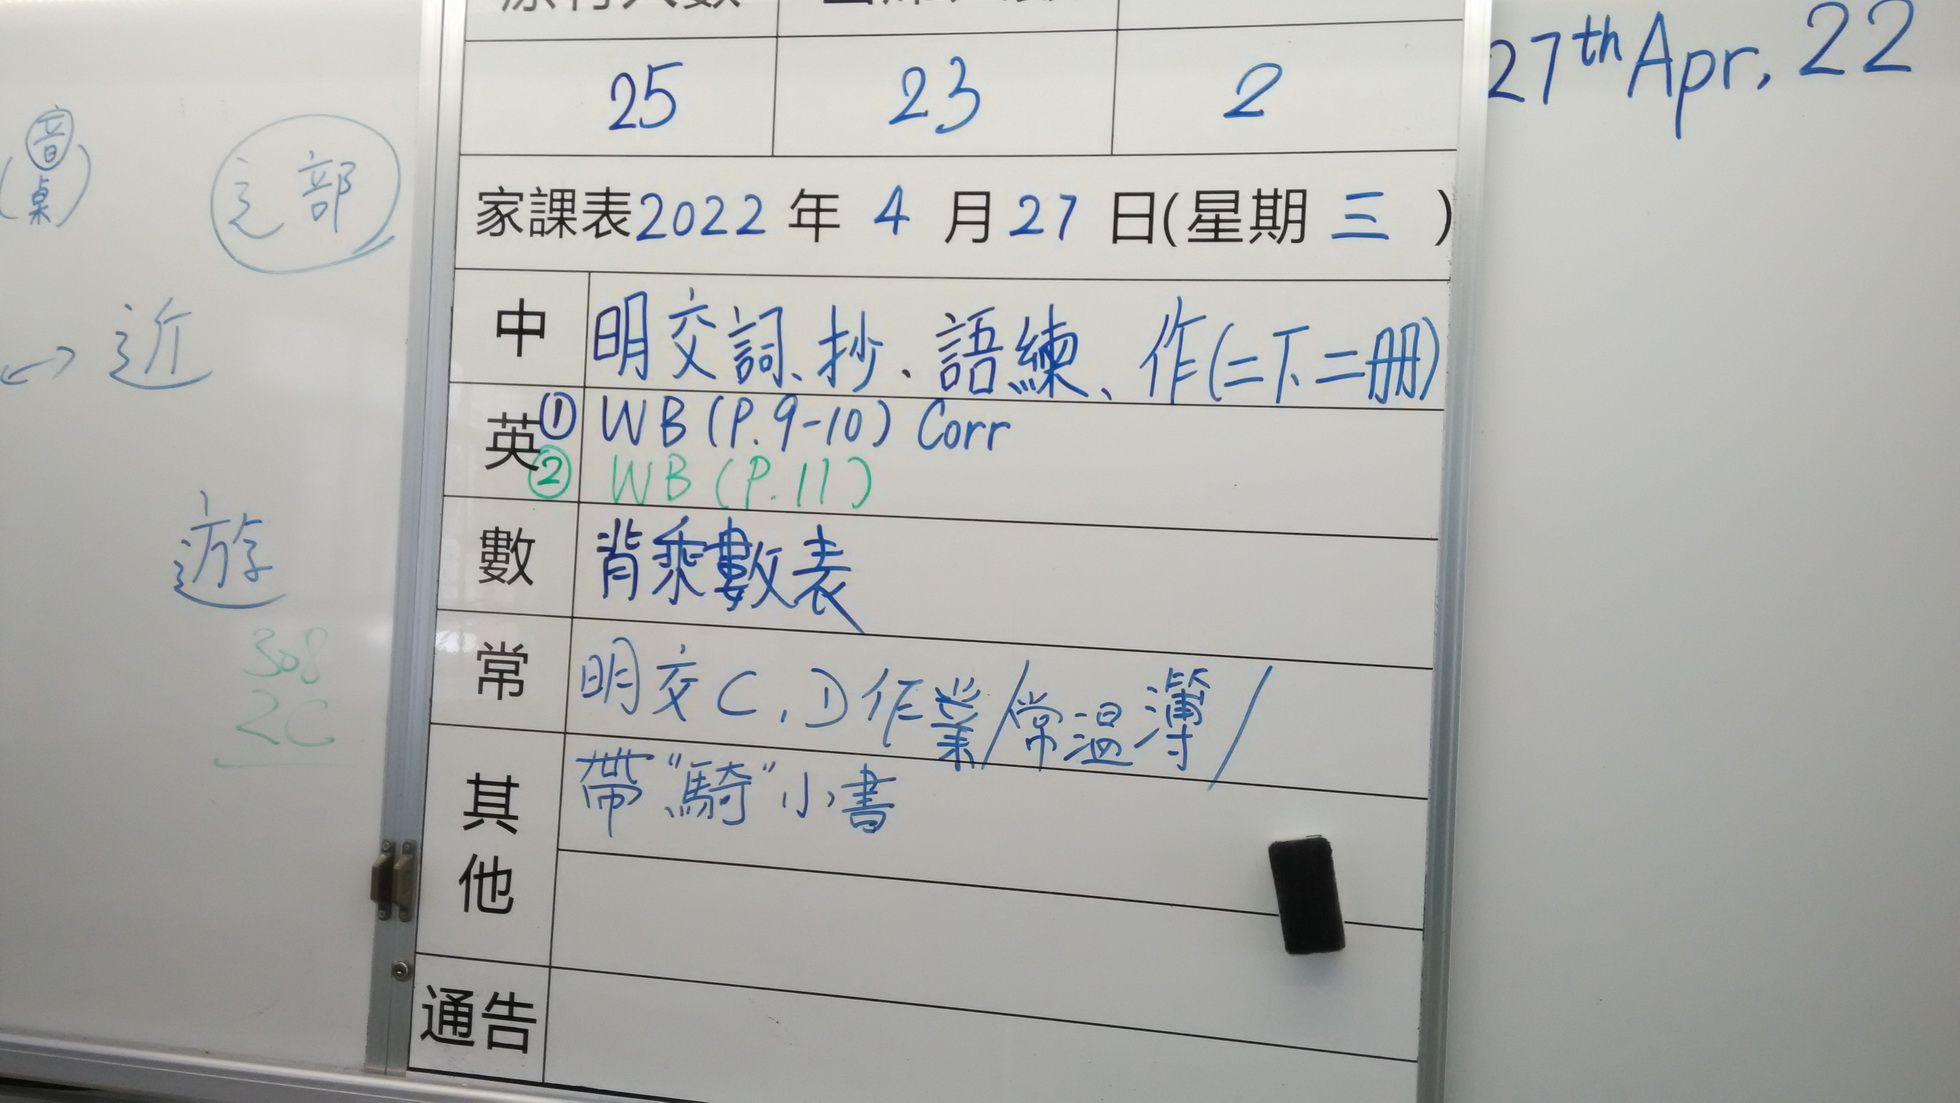 原有人數
25 23 2
27th Apr, 22
家課表2022年4月27日(星期三)
中 明交詞、抄、語練、作(二下二冊)
英 ① WB (P.9-10) Corr
② WB (P.11)
數 背乘數表
常 明交C, D作業/常溫簿/
其他 帶"騎"小書
通告
(音
桌)
辶部
近
遊
308
2C